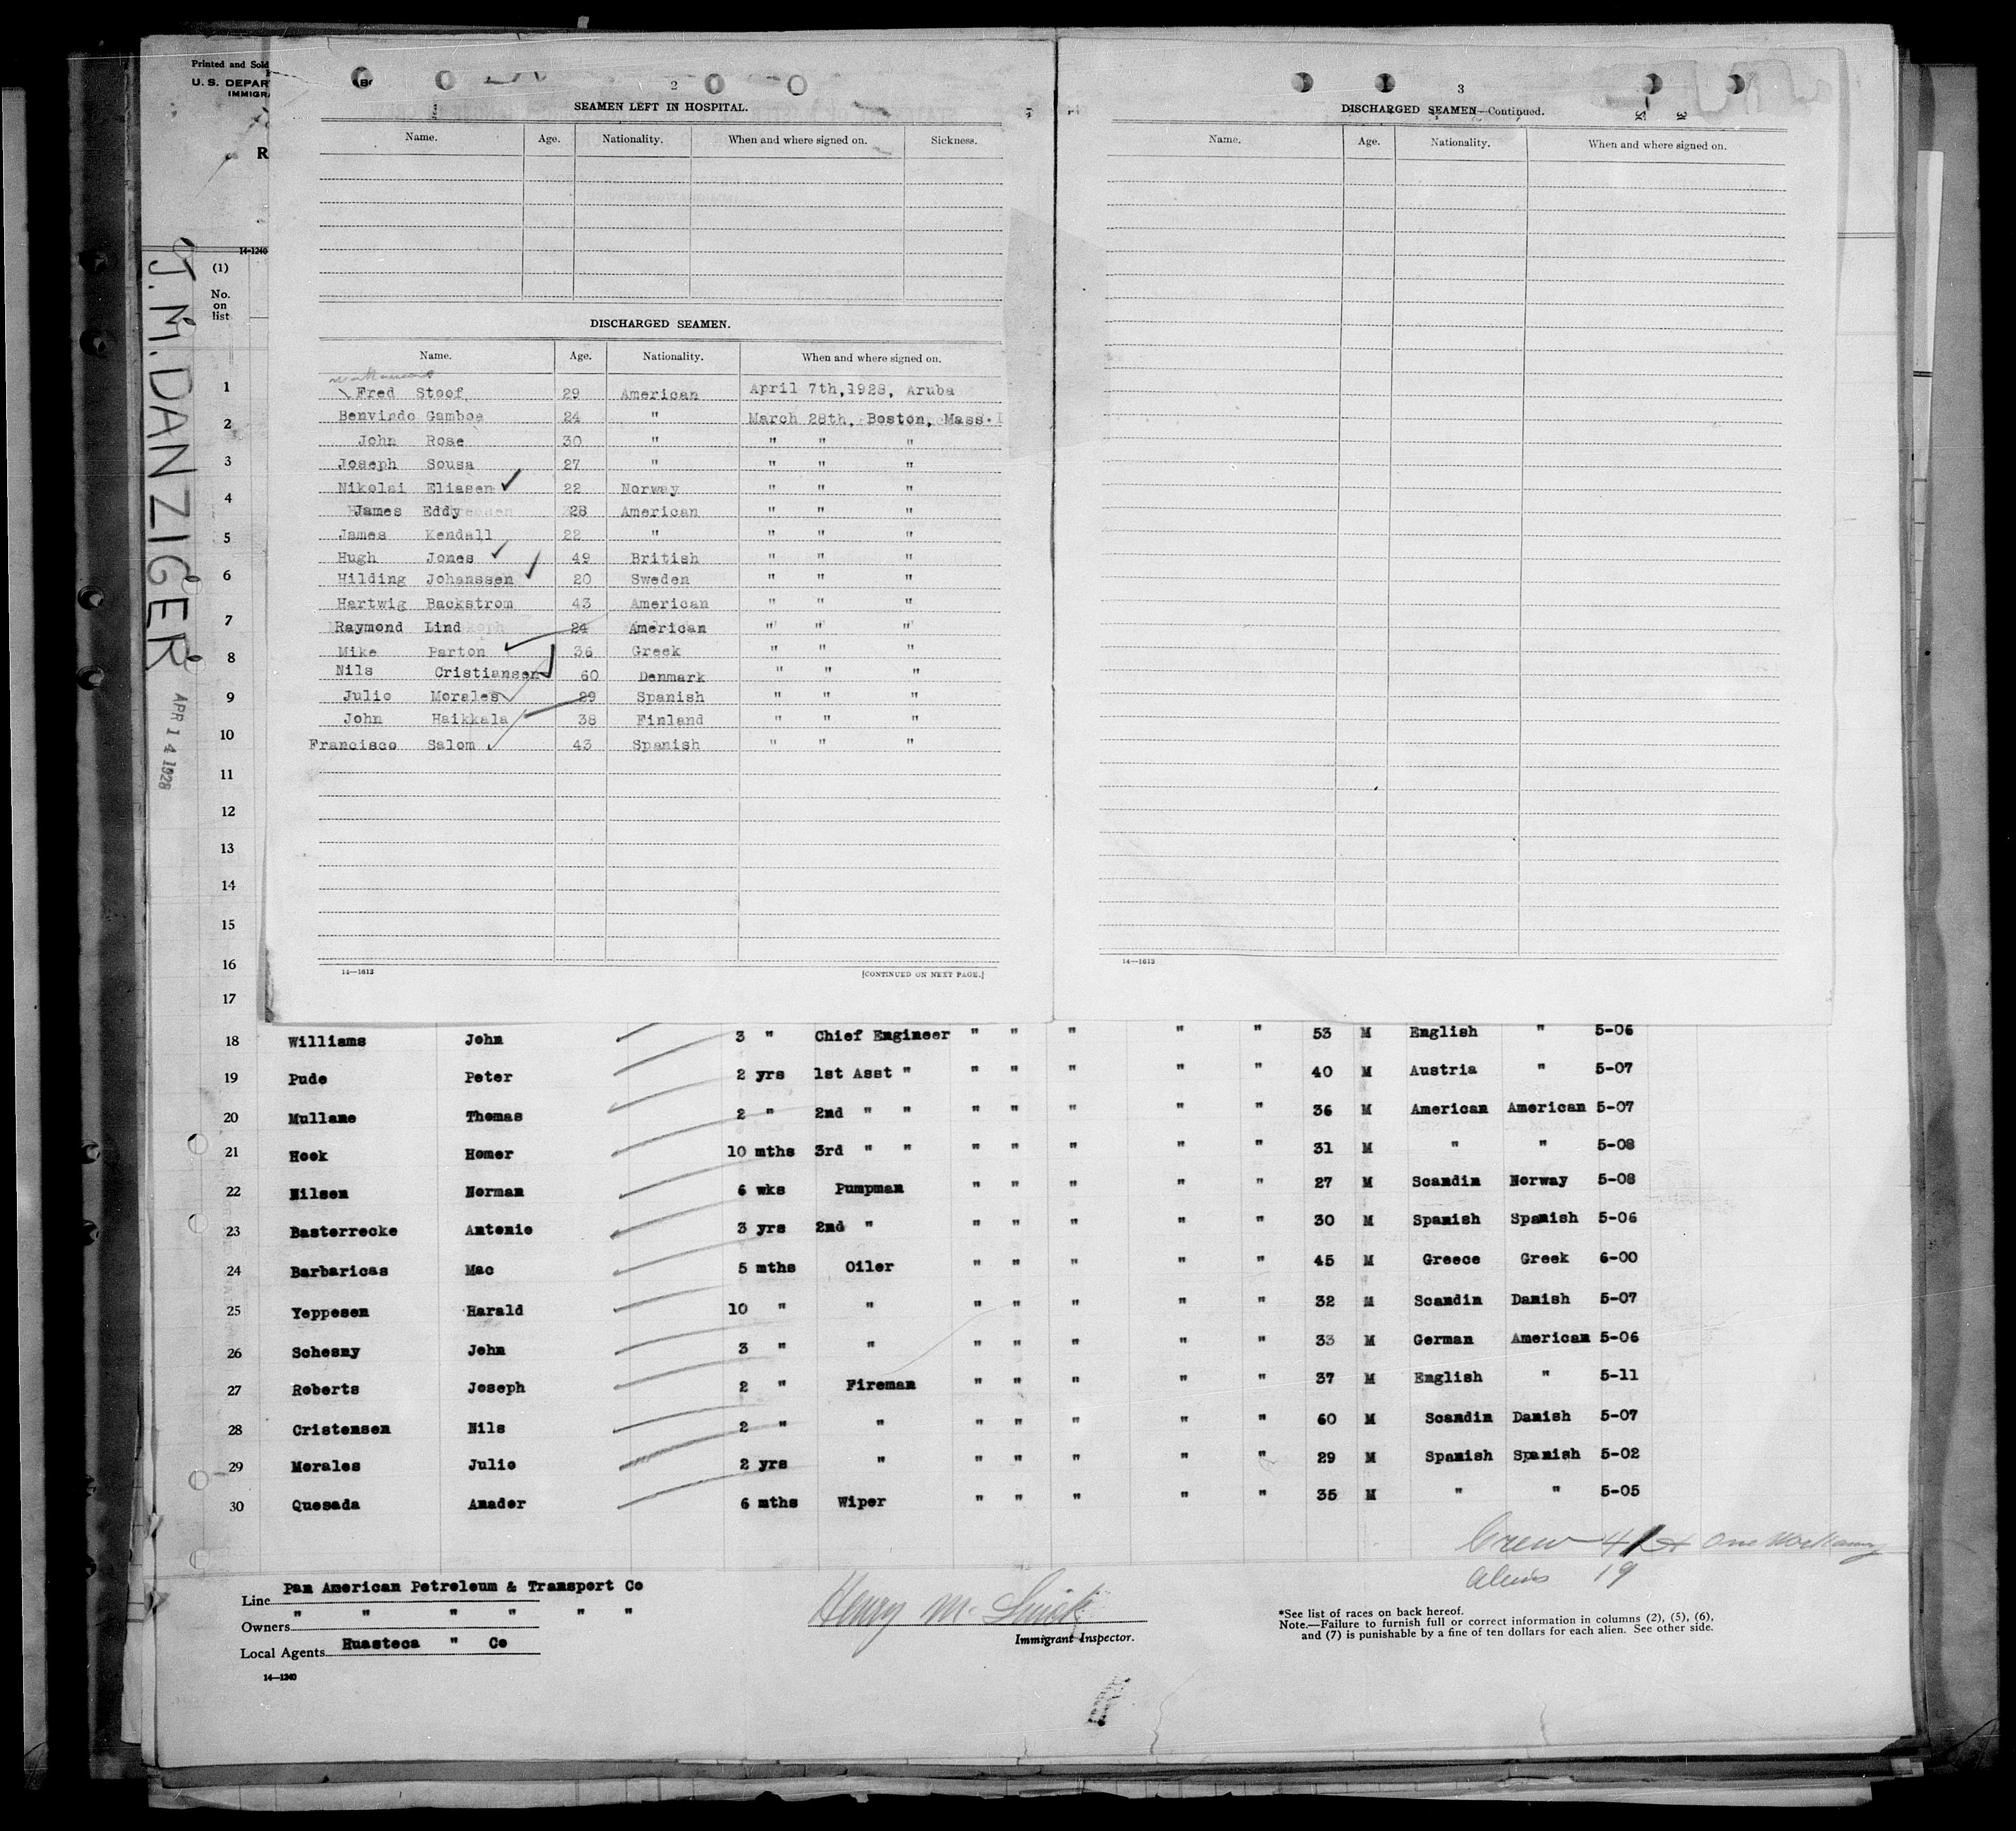 Printed and Sold
U. S. DEPAR
IMMIGRA
R
14-1240
(1)
No.
on
list
J. M. DANZIGER
APR 14 1928
1
2
3
4
5
6
7
8
9
10
11
12
13
14
15
16
17
2
SEAMEN LEFT IN HOSPITAL.
Name. Age. Nationality. When and where signed on. Sickness.
DISCHARGED SEAMEN.
Name. Age. Nationality. When and where signed on.
Fred Stoof 29 American April 7th, 1928, Aruba
Benvindo Gamboa 24 " March 28th, Boston, Mass.
John Rose 30 " " " "
Joseph Sousa 27 " " " "
Nikolai Eliasen 22 Norway " " "
James Eddy 28 American " " "
James Kendall 22 " " " "
Hugh Jones 49 British " " "
Hilding Johanssen 20 Sweden " " "
Hartwig Backstrom 43 American " " "
Raymond Lind 24 American " " "
Mike Parton 36 Greek " " "
Nils Cristiansen 60 Denmark " " "
Julio Morales 29 Spanish " " "
John Haikkala 38 Finland " " "
Francisco Salom 43 Spanish " " "
14—1613 [CONTINUED ON NEXT PAGE.]
3
DISCHARGED SEAMEN—Continued.
Name. Age. Nationality. When and where signed on.
14—1613
18 Williams John 3 " Chief Engineer " " " " " 53 M English " 5-06
19 Pude Peter 2 yrs 1st Asst " " " " " " 40 M Austria " 5-07
20 Mullane Thomas 2 " 2nd " " " " " " " 36 M American American 5-07
21 Hook Homer 10 mths 3rd " " " " " " " 31 M " " 5-08
22 Nilsen Norman 6 wks Pumpman " " " " " 27 M Scandin Norway 5-08
23 Basterrecke Antonio 3 yrs 2nd " " " " " " 30 M Spanish Spanish 5-06
24 Barbaricas Mac 5 mths Oiler " " " " " 45 M Greece Greek 6-00
25 Yeppesen Harald 10 " " " " " " " 32 M Scandin Danish 5-07
26 Schesny John 3 " " " " " " " 33 M German American 5-06
27 Roberts Joseph 2 " Fireman " " " " " 37 M English " 5-11
28 Cristensen Nils 2 " " " " " " " 60 M Scandin Danish 5-07
29 Morales Julio 2 yrs " " " " " " 29 M Spanish Spanish 5-02
30 Quesada Amador 6 mths Wiper " " " " " 35 M " " 5-05
Crew 41 + One Workaway
Aliens 19
Line Pan American Petroleum & Transport Co
Owners " " " " " "
Local Agents Huasteca " Co
14—1240
Henry M.
Immigrant Inspector.
*See list of races on back hereof.
Note.—Failure to furnish full or correct information in columns (2), (5), (6),
and (7) is punishable by a fine of ten dollars for each alien. See other side.